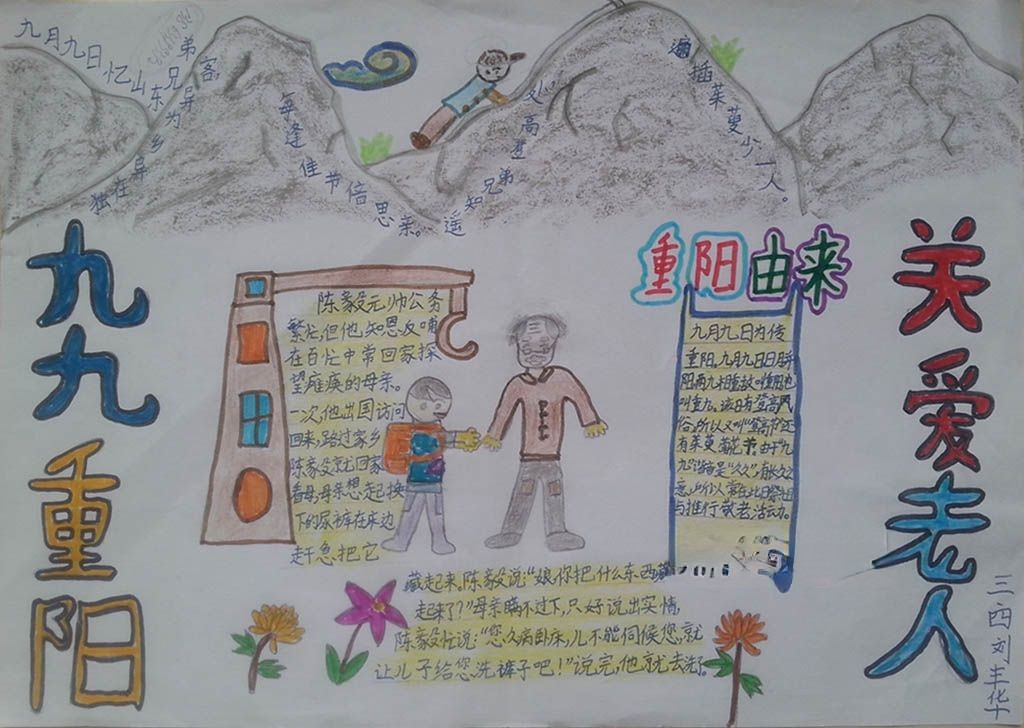 九月九日忆山东兄弟
独在异乡为异客，
每逢佳节倍思亲。
遥知兄弟登高处，
遍插茱萸少一人。
九九重阳
陈毅元帅公务
繁忙,但他知恩反哺
在百忙中常回家探
望瘫痪的母亲。
一次他出国访问
回来,路过家乡
陈毅没就回家
看母,母亲想起换
下的尿裤在床边
赶急把它
藏起来。陈毅说:“娘你把什么东西藏
起来了?”母亲瞒不过下,只好说出实情,
陈毅忙说:“您久病卧床,儿不能伺候您,就
让儿子给您洗裤子吧!”说完,他就去洗了。
重阳由来
九月九日为传
重阳,九月九日日月
阳两九相重故叫重阳也
叫重九。该日有登高风
俗,所以又叫登高节还
有茱萸 菊花节由于九
九谐音是“久久”,有长久之
意,所以常在此日祭祖
与推行敬老活动。
关爱老人
三四刘丰华